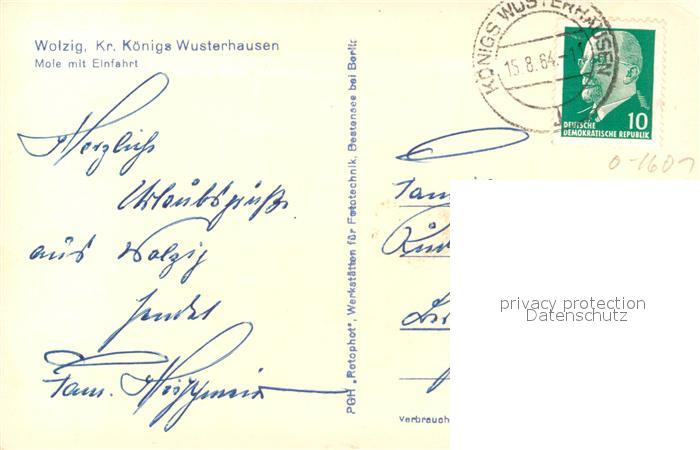 Wolzig, Kr. Königs Wusterhausen
Mole mit Einfahrt
Herzliche
Urlaubsgrüße
aus Wolzig
sendet
Fam.
PGH „Rotophot", Werkstätten für Fototechnik, Bestensee bei Berlin
KÖNIGS WUSTERHAUSEN
15.8.64
DEUTSCHE
DEMOKRATISCHE REPUBLIK
10
0-1607
Fam
privacy protection
Datenschutz
Verbrauch